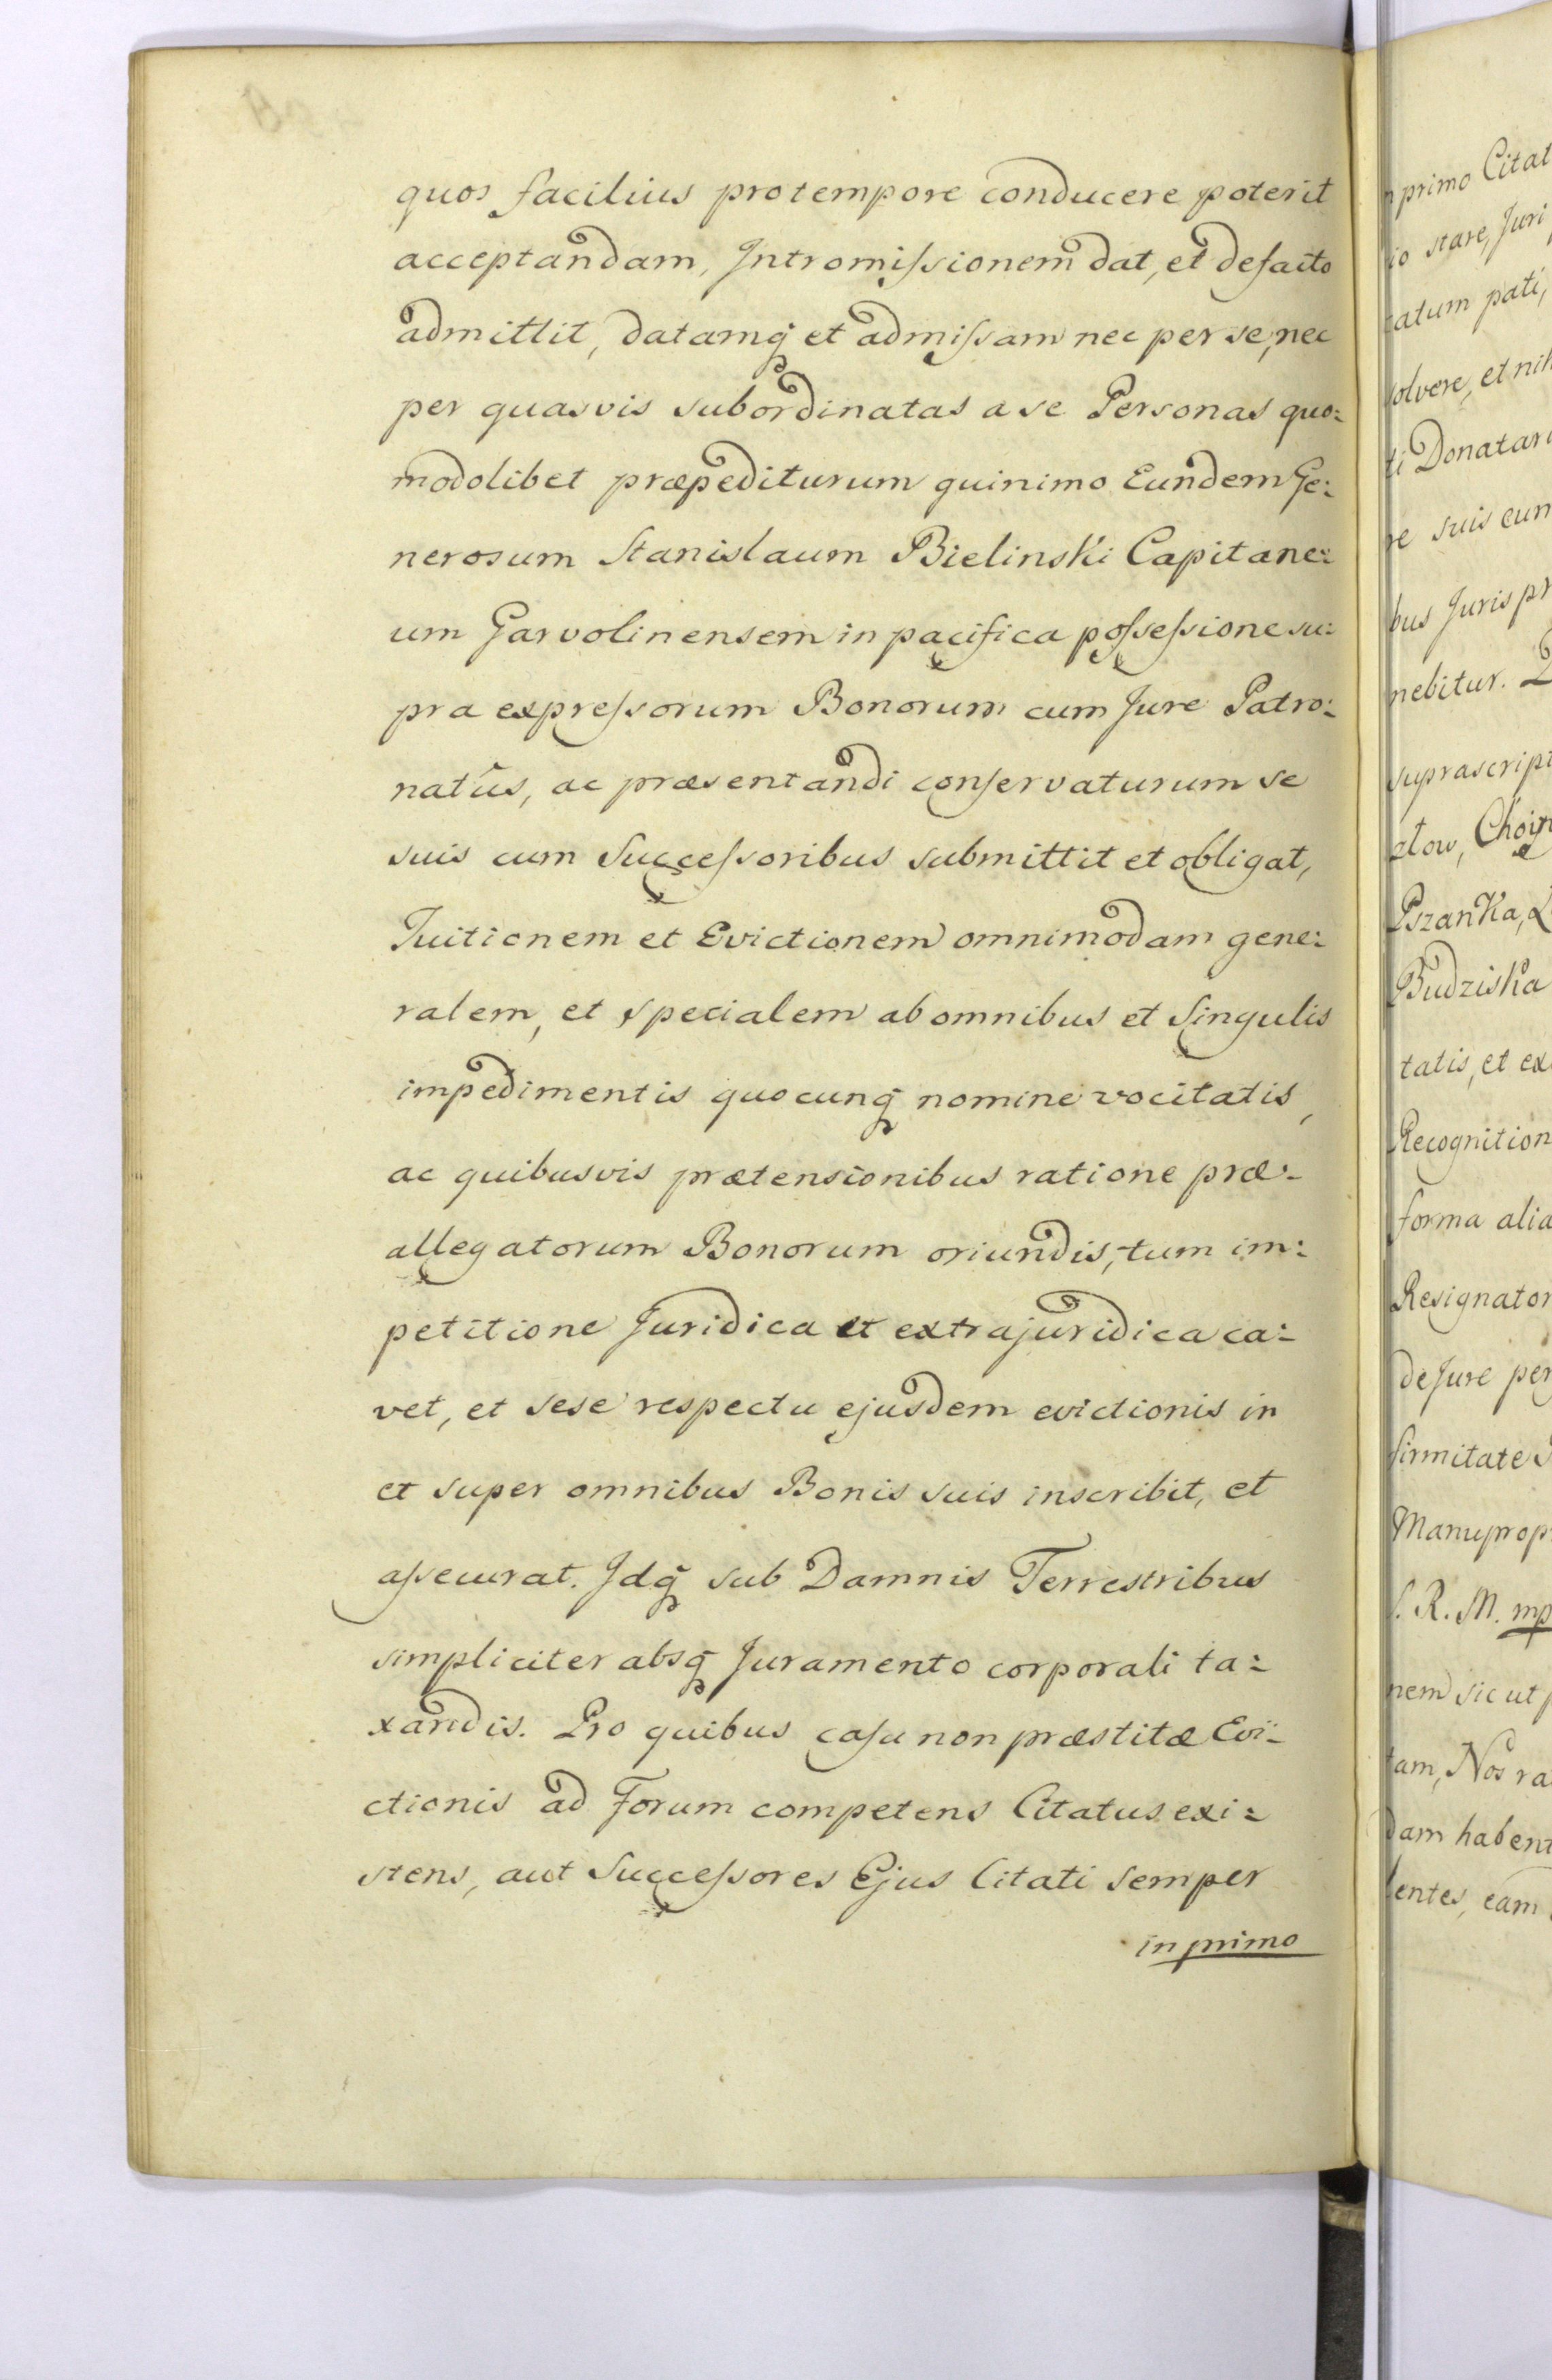 quos facilius pro tempore conducere poterit
acceptandam, Intromiſsionem dat, et defacto
admittit, datamq̃ et admiſsam nec per se, nec
per quasvis subordinatas a se Personas quo:
modolibet præpediturum quinimo Eundem Ge:
nerosum Stanislaum Bielinski Capitane:
um Garvolinensem in pacifica poſseſsione su:
pra expreſsorum Bonorum cum Jure Patro:
natûs, ac præsentandi conſervaturum se
suis cum Succeſsoribus submittit et obligat,
Tuitionem et Evictionem omnimodam gene:
ralem, et specialem ab omnibus et Singulis
impedimentis quocunq̃ nomine vocitatis,
ac quibusvis prætensionibus ratione præ:
allegatorum Bonorum oriundis, tum im:
petitione Juridica et extrajuridica ca:
vet, et sese respectu ejusdem evictionis in
et super omnibus Bonis suis inscribit, et
aſsecurat. Idq̃ sub Damnis Terrestribus
simpliciter absq̃ Juramento corporali ta:
xandis. Pro quibus caſu non præstitæ Evi:
ctionis ad Forum competens Citatus exi:
stens, aut Succeſsores Ejus Citati semper
in primo
primo Citat
stare, Juri
atum pati,
solvere, et nih
ti Donatari
re suis cum
bus Juris pr
nebitur.
suprascript
Pszanka,
Budziska
tatis, et ex
Recognition
forma alia
Resignator
de Jure per
firmitate
Manuprop
S. R. M. mp
nem sic ut p
tam, Nos ra
dam habent
lentes, eam